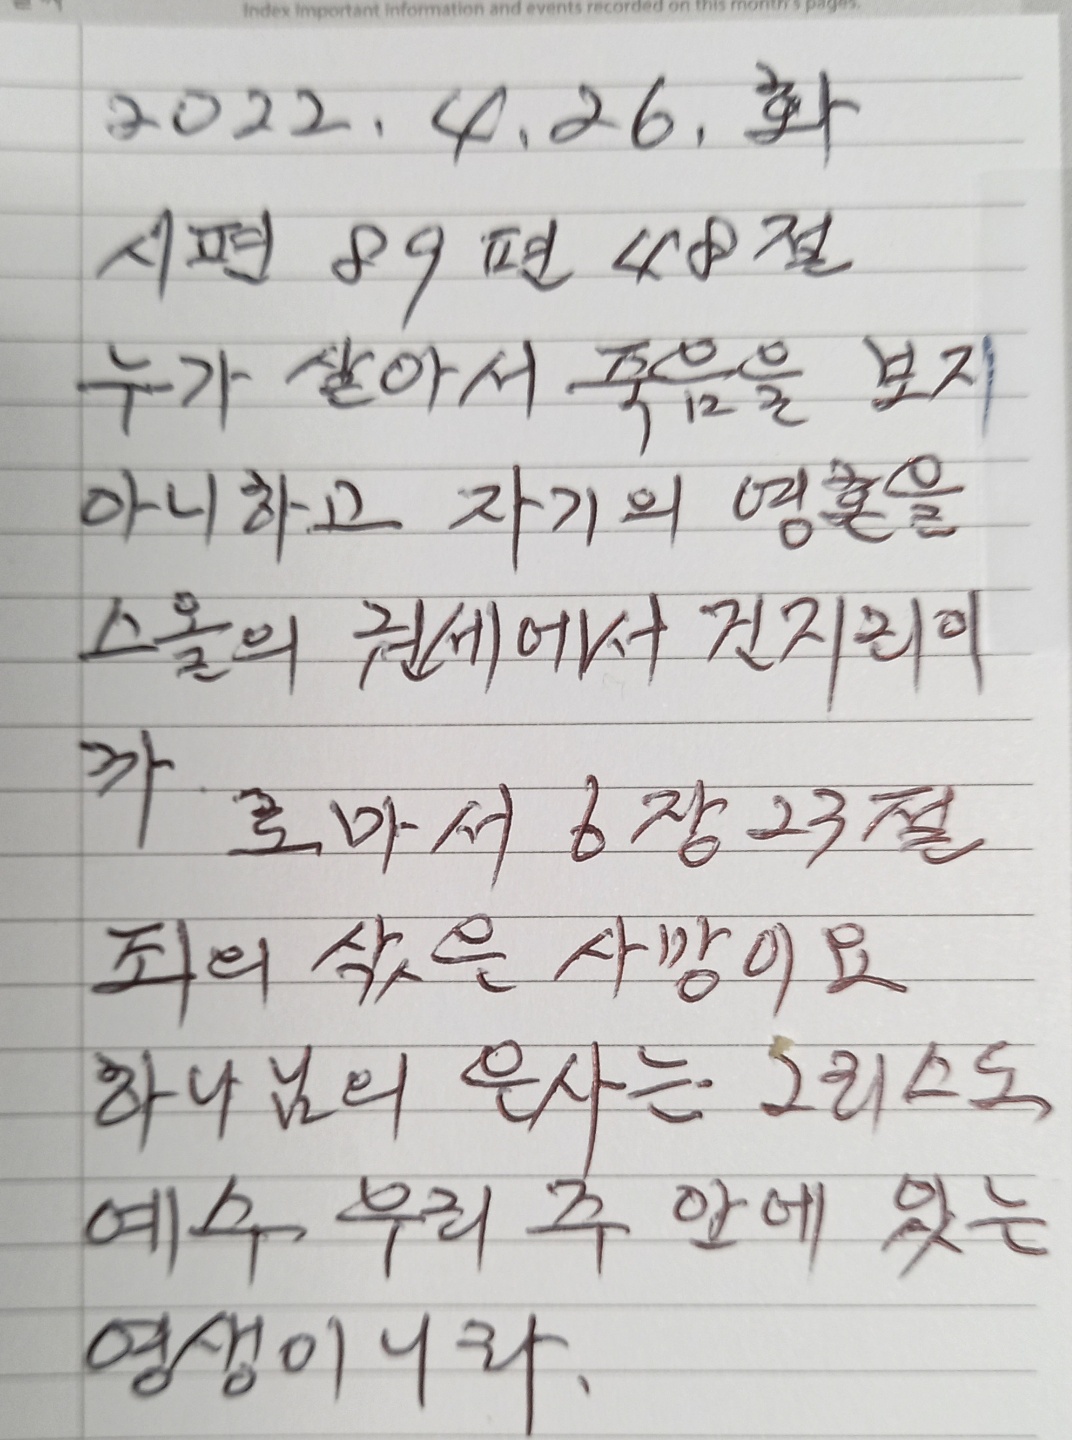 Index Important Information and events recorded on this month's pages.
2022. 4. 26. 화
시편 89편 48절
누가 살아서 죽음을 보지
아니하고 자기의 영혼을
스올의 권세에서 건지리이
까 로마서 6장 23절
죄의 삯은 사망이요
하나님의 은사는 그리스도
예수 우리 주 안에 있는
영생이니라.